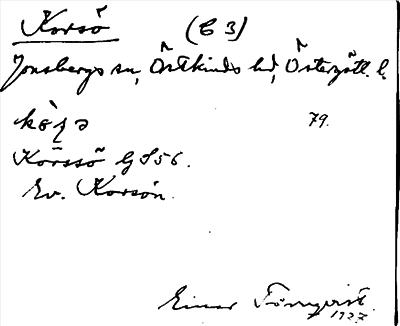 Korsö (C 3)
Jonsbergs sn, Östkinds hd, Östergötl. l.
79.
Korssö GS56.
Ev. Korsön.
Einar Törnqvist.
1927.